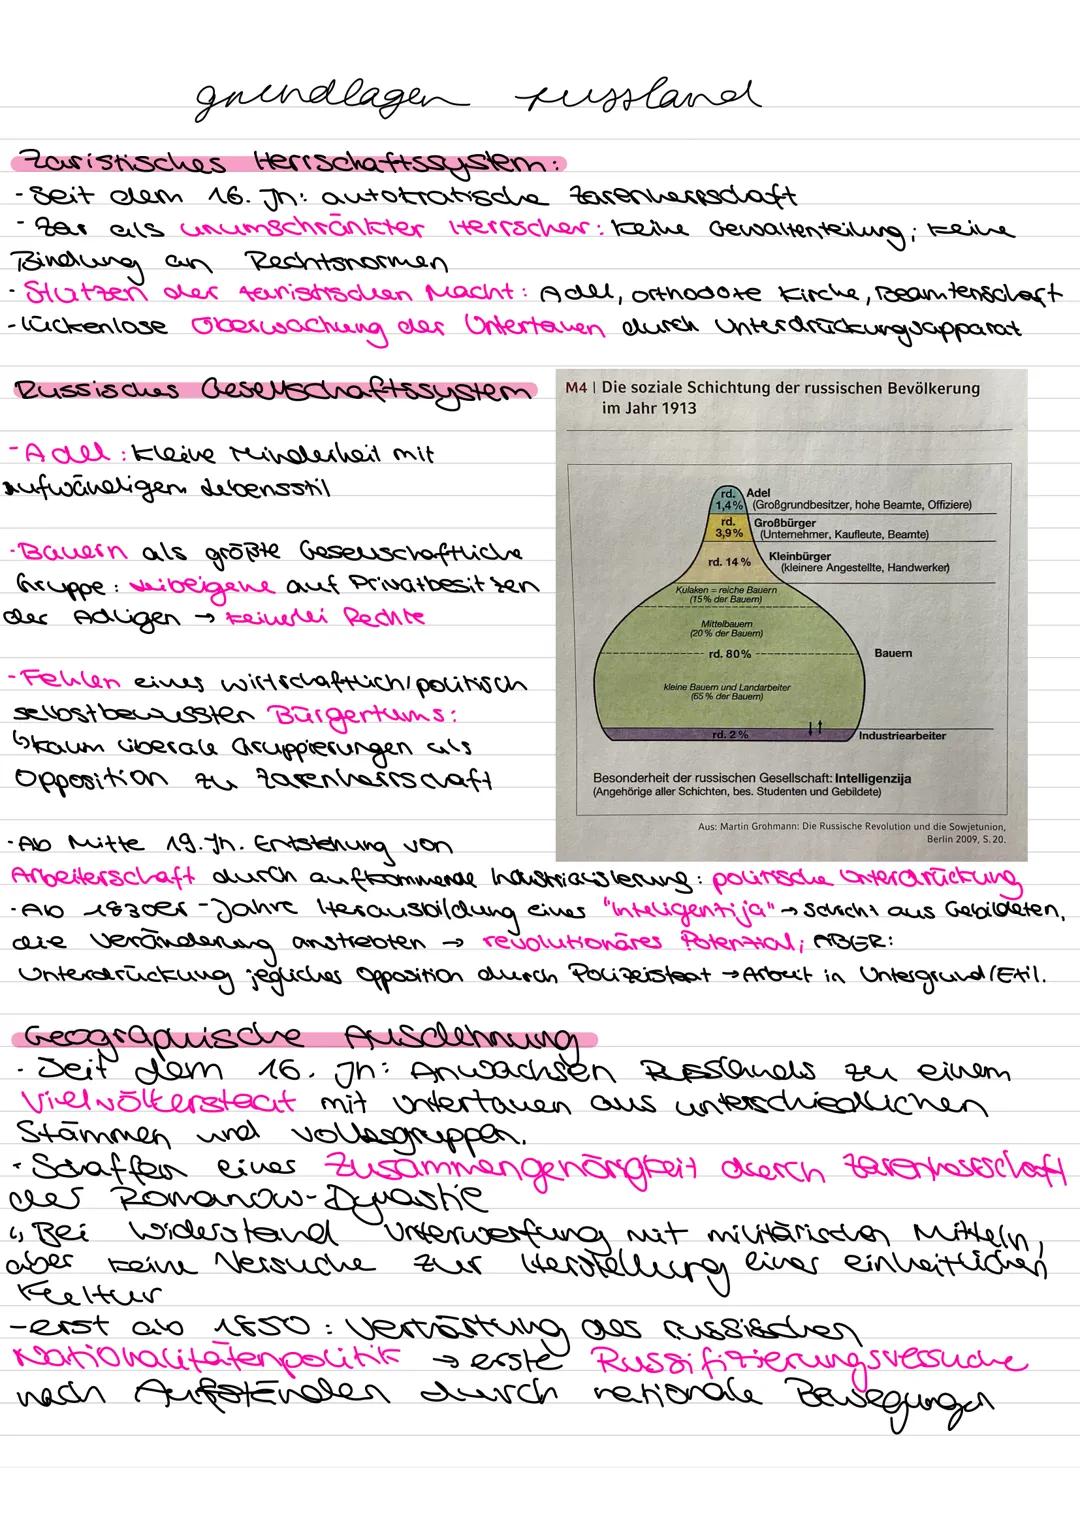 grundlagen russland
Zaristisches Herrschaftssystem:
- Seit dem 16. Jh: autokratische Zarenherrschaft
- Zar als unumschränkter Herrscher: keine Gewaltenteilung; keine
Bindung an Rechtsnormen
- Stützen der zaristischen Macht: Adel, orthodoxe Kirche, Beamtenschaft
- lückenlose Überwachung der Untertanen durch Unterdrückungsapparat
Russisches Gesellschaftssystem
- Adel: kleine Minderheit mit
aufwändigem Lebensstil
- Bauern als größte Gesellschaftliche
Gruppe: Leibeigene auf Privatbesitzen
der Adligen → keinerlei Rechte
- Fehlen eines wirtschaftlich/politisch
selbstbewussten Bürgertums:
↳ kaum liberale Gruppierungen als
Opposition zu Zarenherrschaft
M4 | Die soziale Schichtung der russischen Bevölkerung
im Jahr 1913
rd. 1,4% Adel
(Großgrundbesitzer, hohe Beamte, Offiziere)
rd. 3,9% Großbürger
(Unternehmer, Kaufleute, Beamte)
rd. 14% Kleinbürger
(kleinere Angestellte, Handwerker)
Kulaken = reiche Bauern
(15% der Bauern)
Mittelbauern
(20% der Bauern)
rd. 80% Bauern
kleine Bauern und Landarbeiter
(65% der Bauern)
rd. 2% Industriearbeiter
Besonderheit der russischen Gesellschaft: Intelligenzija
(Angehörige aller Schichten, bes. Studenten und Gebildete)
Aus: Martin Grohmann: Die Russische Revolution und die Sowjetunion,
Berlin 2009, S. 20.
- Ab Mitte 19. Jh. Entstehung von
Arbeiterschaft durch aufkommende Industrialisierung: politische Unterdrückung
- Ab 1830er-Jahre Herausbildung einer "Inteligentija" → Schicht aus Gebildeten,
die Veränderung anstrebten → revolutionäres Potential; ABER:
Unterdrückung jeglicher Opposition durch Polizeistaat → Arbeit in Untergrund/Exil.
Geographische Ausdehnung
- Seit dem 16. Jh: Anwachsen Russlands zu einem
Vielvölkerstaat mit Untertanen aus unterschiedlichen
Stämmen und Volksgruppen.
- Schaffen einer Zusammengehörigkeit durch Zarenherrschaft
der Romanow-Dynastie
↳ Bei Widerstand Unterwerfung mit militärischen Mitteln,
aber keine Versuche zur Herstellung einer einheitlichen
Kultur
- erst ab 1850: Verstärkung der russischen
Nationalitätenpolitik → erste Russifizierungsversuche
nach Aufständen durch nationale Bewegungen